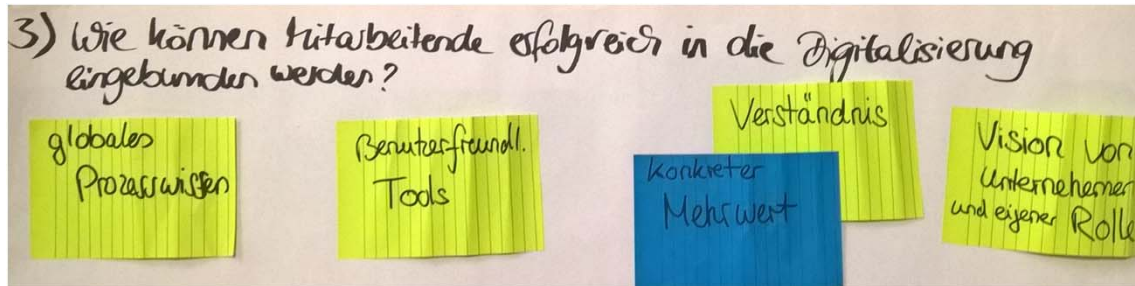 3) Wie können Mitarbeitende erfolgreich in die Digitalisierung
eingebunden werden?
globales
Prozesswissen
Benutzerfreundl.
Tools
Verständnis
Konkreter
Mehrwert
Vision von
Unternehmer
und eigener Rolle